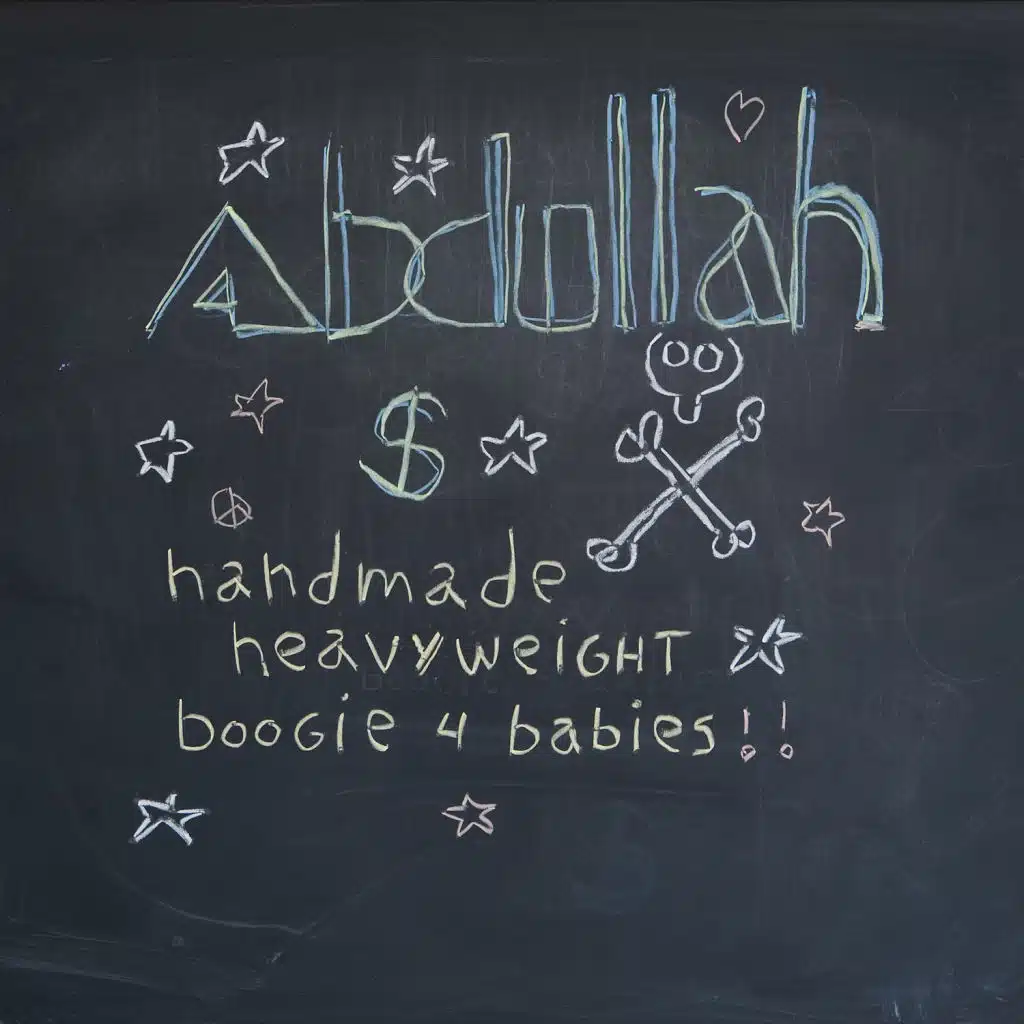 Abdullah
$
handmade
heavyweiGHT
booGie 4 babies!!